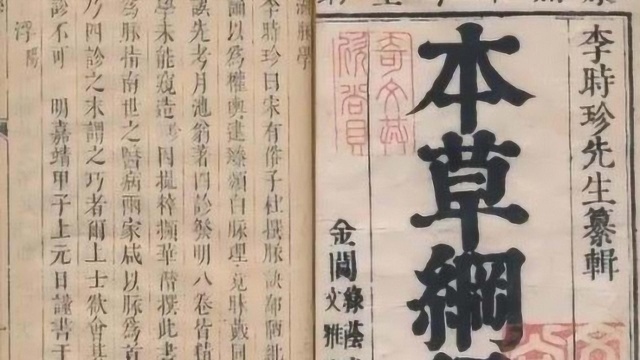 李時珍先生纂輯
本草綱
金閶
綠蔭
文雅
湖脉學
李時珍曰宋有俗子杜撰脉訣鄙陋紕
誦以爲權輿逮臻頒白脉理竟昧戴同
誤先考月池翁著四診發明八卷皆精
學未能窺造珍因撮粹擷華僭撰此書
爲脉指南世之醫病兩家咸以脉爲首
乃四診之末謂之巧者爾上士欲會其
診不可 明嘉靖甲子上元日謹書于
浮 陽